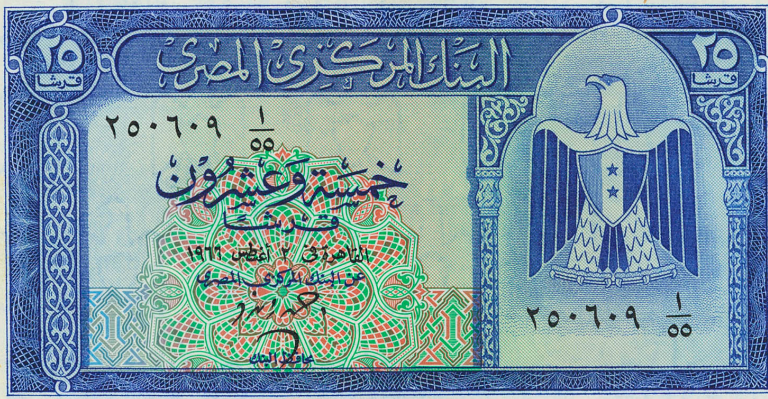 ٢٥ البنك المركزي المصري ٢٥
قرشا قرشا
٢٥٠٦٠٩ ١/٥٥
خمسة وعشرون
قرشًا
القاهرة في ٢ أغسطس ١٩٦٦
عن البنك المركزي المصري
محافظ البنك
٢٥٠٦٠٩ ١/٥٥